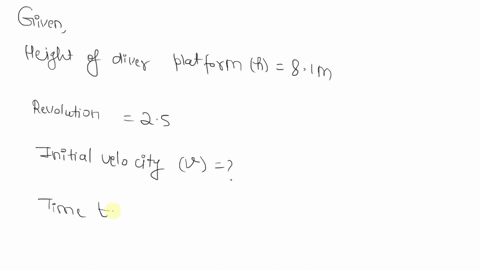 Given,
Height of diver platform (h) = 8.1m
Revolution = 2.5
Initial velocity (v) = ?
Time t